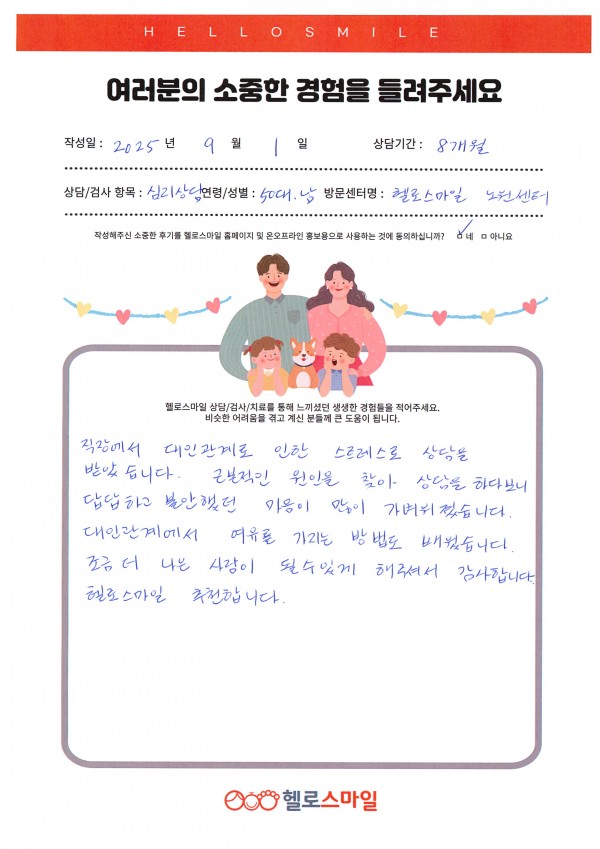 HELLOSMILE
여러분의 소중한 경험을 들려주세요
작성일 : 2025 년 9 월 1 일 상담기간 : 8개월
상담/검사 항목 : 심리상담 연령/성별 : 50대.남 방문센터명 : 헬로스마일 노원센터
작성해주신 소중한 후기를 헬로스마일 홈페이지 및 온오프라인 홍보용으로 사용하는 것에 동의하십니까? ㅁ 네 ㅁ 아니요
헬로스마일 상담/검사/치료를 통해 느끼셨던 생생한 경험들을 적어주세요.
비슷한 어려움을 겪고 계신 분들께 큰 도움이 됩니다.
직장에서 대인관계로 인한 스트레스로 상담을
받았습니다. 근본적인 원인을 찾아 상담을 하다보니
답답하고 불안했던 마음이 많이 가벼워졌습니다.
대인관계에서 여유를 가지는 방법도 배웠습니다.
조금 더 나은 사람이 될수있게 해주셔서 감사합니다.
헬로스마일 추천합니다.
헬로스마일